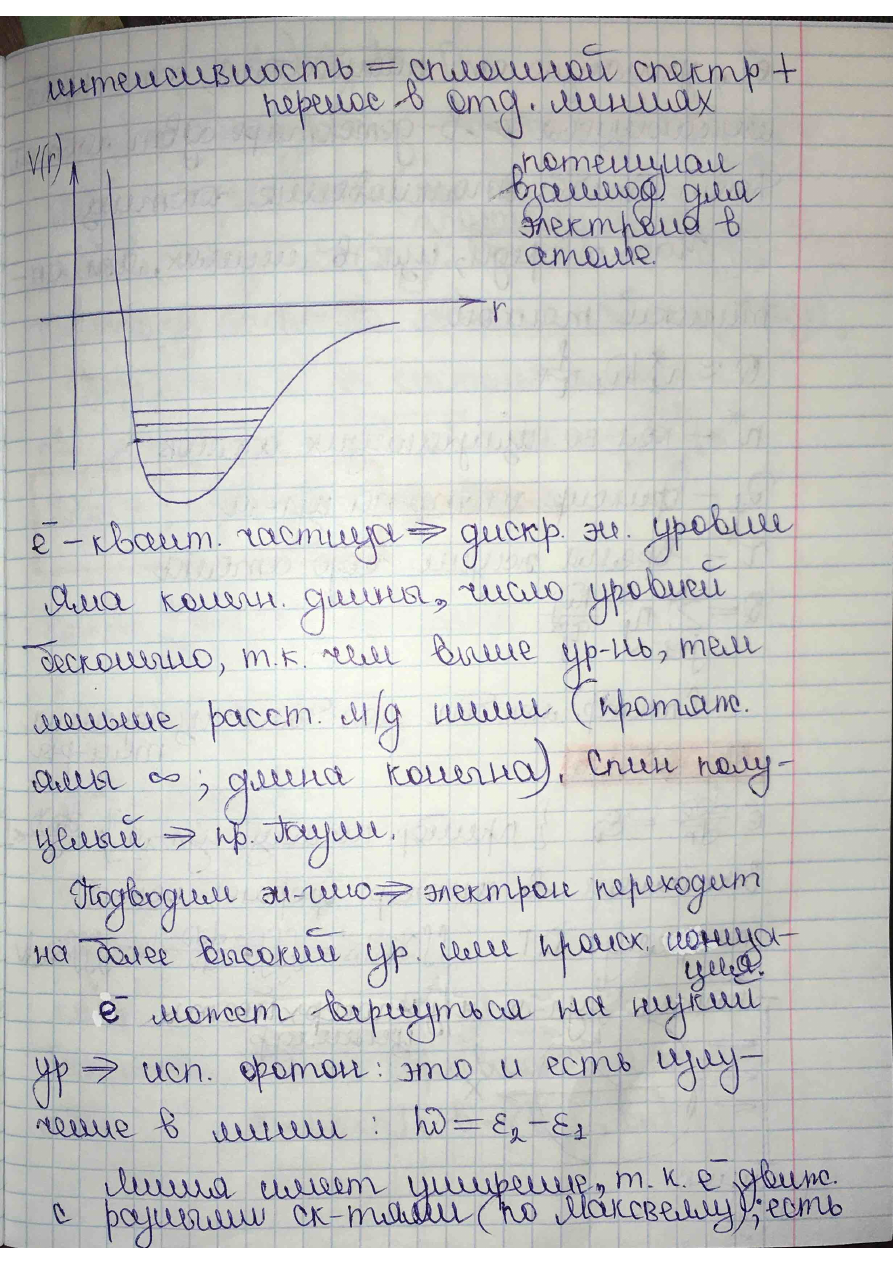 интенсивность = сплошной спектр +
перенос в отд. линиях
V(r)
потенциал
взаимод. для
электрона в
атоме.
r
e⁻ – квант. частица ⇒ дискр. эн. уровни
Яма конечн. длины, число уровней
бесконечно, т.к. чем выше ур-нь, тем
меньше расст. м/д ними (протяж.
ямы ∞; длина конечна). Спин полу-
целый ⇒ пр. Паули.
Подводим эн-гию ⇒ электрон переходит
на более высокий ур. или происх. иониза-
ция.
e⁻ может вернуться на низкий
ур ⇒ исп. фотон: это и есть излу-
чение в линии : ħω = ε₂ – ε₁
Линия имеет уширение, т.к. e⁻ движ.
с разными ск-тями (по Максвеллу); есть